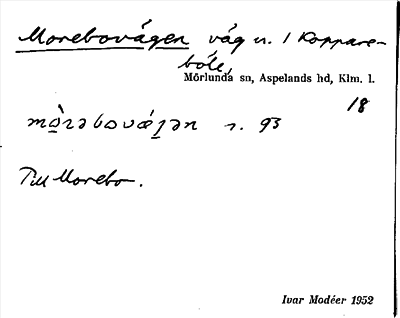 Morebovägen väg n. 1 Koppare-
böle,
Mörlunda sn, Aspelands hd, Klm. l.
18
r. 93
Till Morebo.
Ivar Modéer 1952